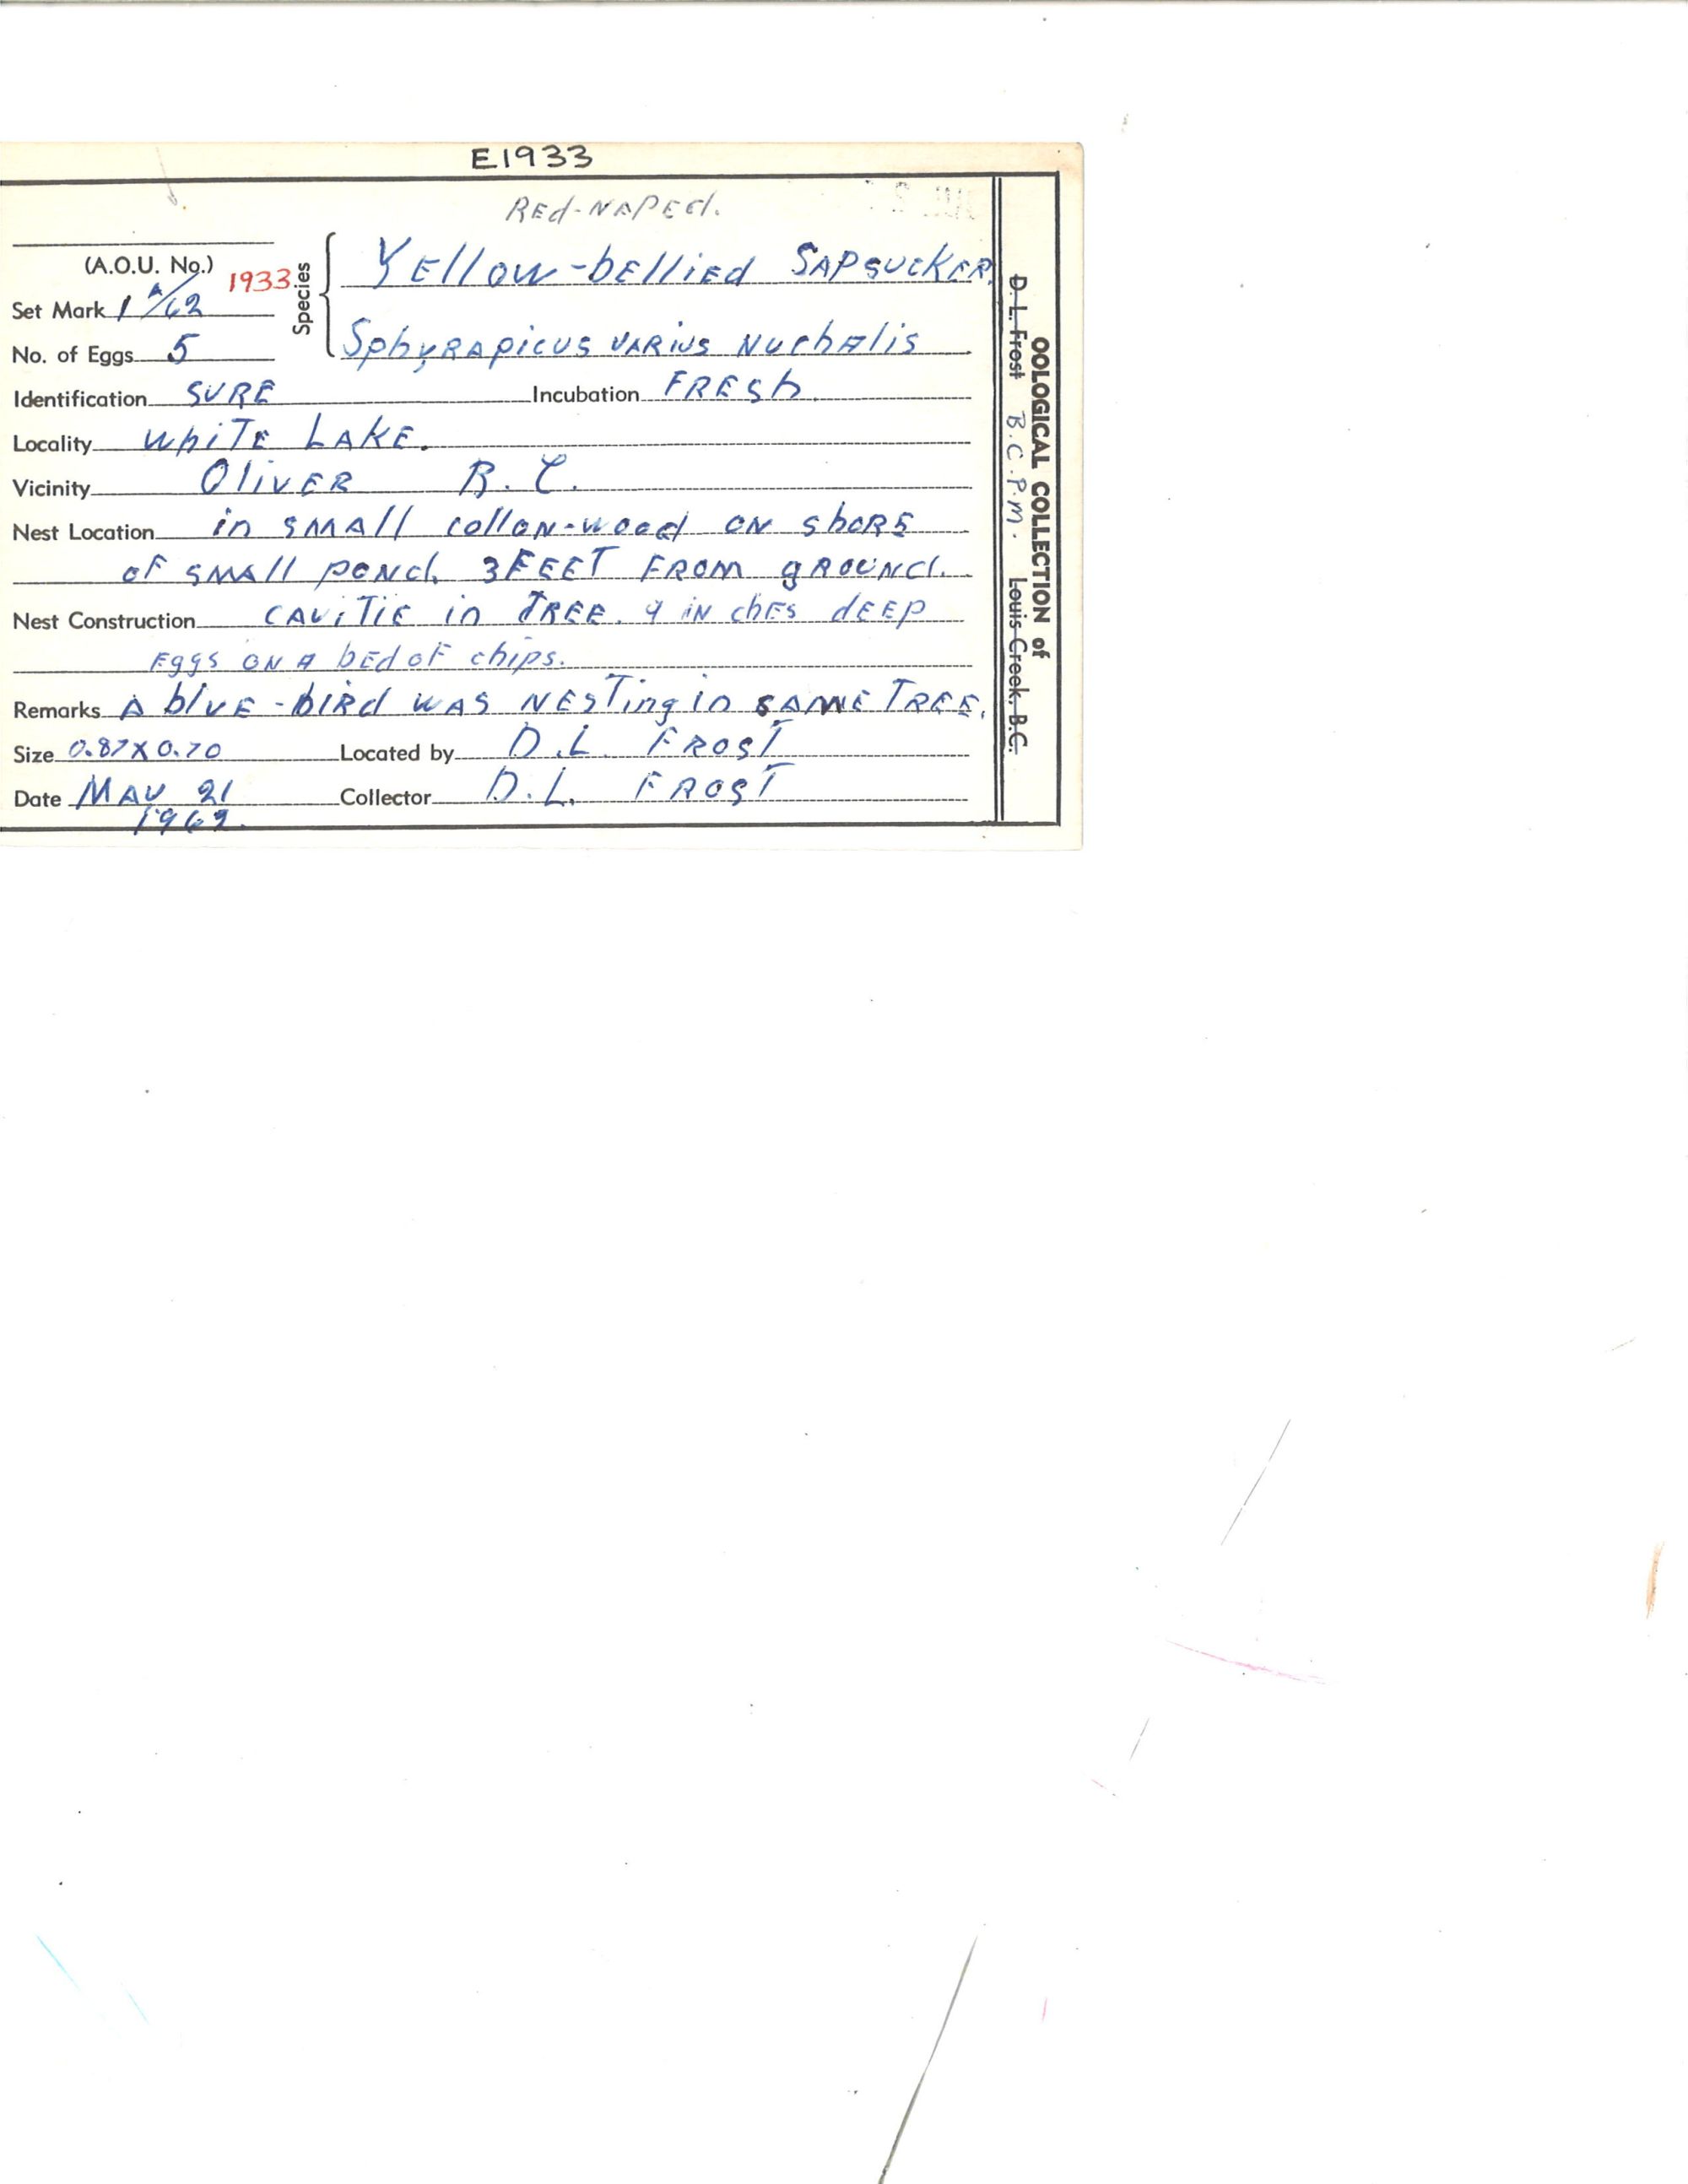 E1933
RED-NAPED.
(A.O.U. No.) 1933
Species
YELLOW-bELLIED SAPSUCKER.
Set Mark 1 A/62
No. of Eggs 5
SphyRAPicus VARIUS NUchAlis
Identification SURE Incubation FRESh.
Locality WhiTE LAKE.
Vicinity OliVER B.C.
Nest Location in SMAll coTTON-wood ON ShORE
OF SMAll poNd. 3 FEET FROM gROUNd.
Nest Construction CAViTiE in TREE. 9 iNchES dEEp
Eggs ON A bEd oF chips.
Remarks A blUE-biRd WAS NESTing in SAME TREE.
Size 0.87 X 0.70 Located by D.L. FROST
Date MAY 21 Collector D.L. FROST
1962.
OOLOGICAL COLLECTION of
D. L. Frost B.C.P.M. Louis Creek, B.C.